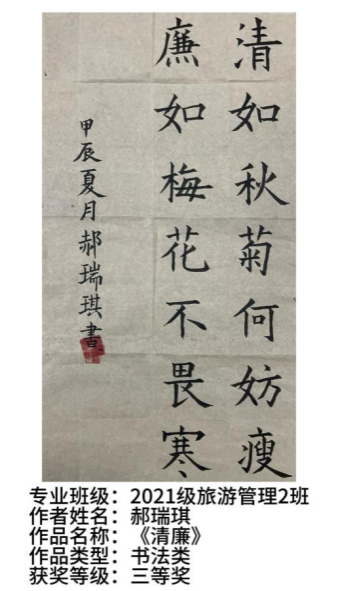 清如秋菊何妨瘦
廉如梅花不畏寒
甲辰夏月郝瑞琪書
专业班级：2021级旅游管理2班
作者姓名：郝瑞琪
作品名称：《清廉》
作品类型：书法类
获奖等级：三等奖